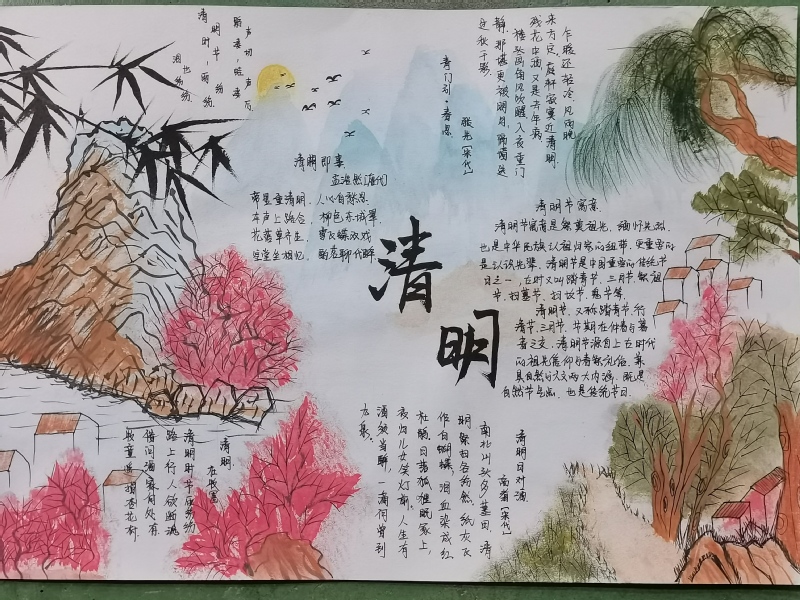 清明节 纷纷
清明时，雨纷纷
泪也纷纷
青门引·春思
张先[宋代]
乍暖还轻冷，风雨晚
来方定。庭轩寂寞近清明。
残花中酒又是去年病。
楼头画角风吹醒入夜重门
静。那堪更被明月，隔墙送
过秋千影。
清明即事
孟浩然[唐代]
帝里重清明，人心自愁思。
车声上路合，柳色东城翠。
花落草齐生，莺飞蝶双戏
空堂坐相忆，酌茗聊代醉
清明
清明节寓意
清明节寓意是祭奠祖先，缅怀先烈，
也是中华民族认祖归宗的纽带，更重要的
是认识先辈。清明节是中国重要的传统节
日之一，在时又叫踏青节、三月节、祭祖
节、扫墓节、扫坟节、鬼节等。
清明节，又称踏青节、行
清节、三月节，节期在仲春与暮
春之交。清明节源自上古时代
的祖先信仰与春祭礼俗，兼
具自然与人文两大内涵，既是
自然节气点，也是传统节日。
清明日对酒
高翥[宋代]
南北山头多墓田，清
明祭扫各纷然，纸灰飞
作白蝴蝶，泪血染成红
杜鹃。日落狐狸眠冢上，
夜归儿女笑灯前，人生有
酒须当醉，一滴何曾到
九泉。
清明
杜牧[唐]
清明时节雨纷纷
路上行人欲断魂
借问酒家何处有
牧童遥指杏花村